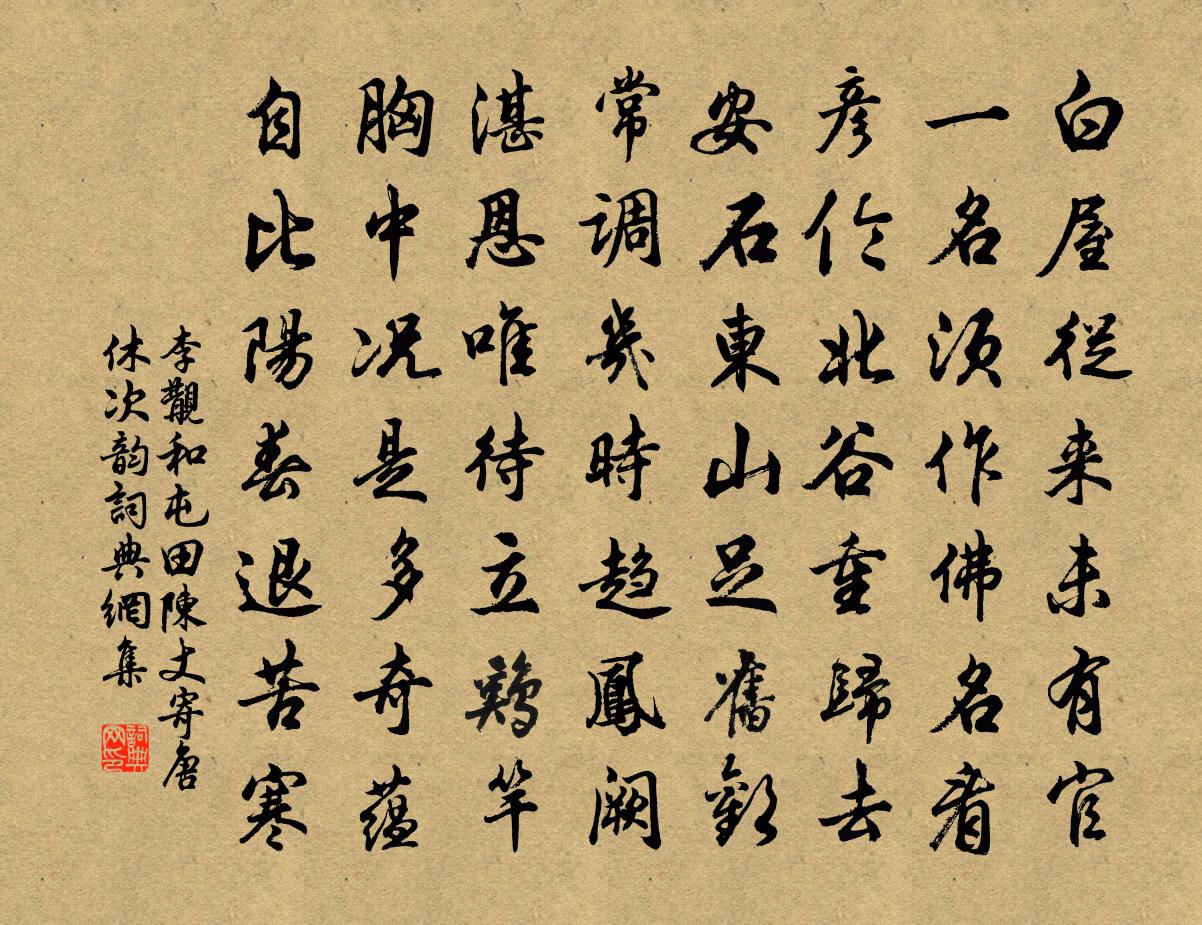 白屋從来未有官
一名須作佛名看
彥伶北谷重歸去
安石東山足舊歡
常調幾時趋鳳阙
湛恩唯待立鷄竿
胸中况是多奇蕴
自比陽春退苦寒
李觀和屯田陳丈寄唐
休次韵詞典網集
詞典网印